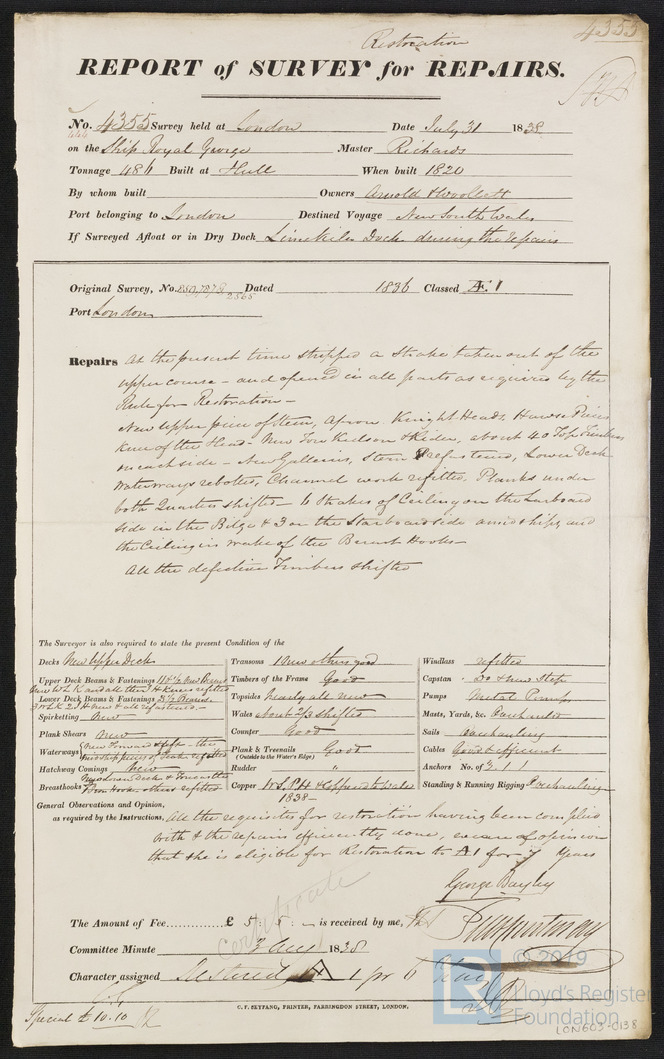 4355
Restoration
REPORT of SURVEY for REPAIRS.
No. 4355 Survey held at London Date July 31 1838
446
on the Ship Royal George Master Richards
Tonnage 486 Built at Hull When built 1820
By whom built Owners Arnold & Woollett
Port belonging to London Destined Voyage New South Wales
If Surveyed Afloat or in Dry Dock Limekiln Dock during the repairs
Original Survey, No. 2565 Dated 1836 Classed Æ 1
Port London
Repairs At the present time stripped a Strake taken out of the
upper course - and opened in all parts as required by the
Rule for Restoration -
New upper piece of Stem, Apron, Knight Heads, Hawse Pieces
Knee of the Head - New Fore Keelson & Rider, about 40 Top Timbers
on each side - New Galleries, Stern refastened, Lower Deck
Waterways rebolted, Channel work refitted, Planks under
both Quarters shifted - 6 Strakes of Ceiling on the Larboard
side in the Bilge & 3 on the Starboard side amidships, and
the Ceiling in wake of the Breast Hooks -
All the defective Timbers shifted
The Surveyor is also required to state the present Condition of the
Decks New Upper Deck
Upper Deck Beams & Fastenings
Lower Deck Beams & Fastenings
Spirketting New
Plank Shears New
Waterways New Forward & Aft - the
midship pieces refitted
Hatchway Comings New
Breasthooks others refitted
Transoms 1 New others good
Timbers of the Frame Good
Topsides Nearly all new
Wales about 2/3 shifted
Counter Good
Plank & Treenails Good
(Outside to the Water's Edge)
Rudder "
Copper & Coppered to Wales
1838 -
Windlass refitted
Capstan Do & new Step
Pumps Metal Pumps
Masts, Yards, &c. Overhauled
Sails Overhauling
Cables Good & efficient
Anchors No. of 3. 1. 1
Standing & Running Rigging Overhauling
General Observations and Opinion,
as required by the Instructions, All the requisites for restoration having been complied
with & the repairs efficiently done, we are of opinion
that she is eligible for Restoration to A1 for 7 Years
George Bayley
certificate
The Amount of Fee £ 5 : 5 : - is received by me,
Committee Minute 3 Aug 1838
Character assigned Restored to A 1 for 6 Years
C. F. SEYFANG, PRINTER, FARRINGDON STREET, LONDON.
Special £ 10.10
LR
© 2019
Lloyd's Register
Foundation
LON603-0138